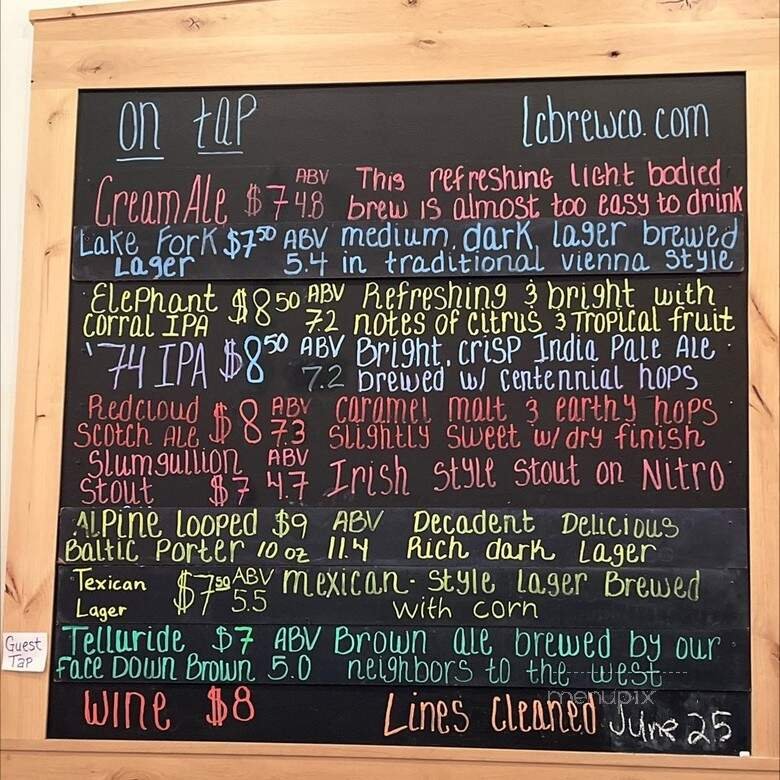 on tap lcbrewco.com
Cream Ale $7 ABV 4.8 This refreshing light bodied
brew is almost too easy to drink
Lake Fork $7.50 ABV medium, dark, lager brewed
Lager 5.4 in traditional vienna style
Elephant $8.50 ABV Refreshing & bright with
Corral IPA 7.2 notes of citrus & Tropical fruit
'74 IPA $8.50 ABV Bright, crisp India Pale Ale
7.2 brewed w/ centennial hops
Redcloud $8 ABV caramel malt & earthy hops
Scotch Ale 7.3 slightly sweet w/ dry finish
Slumgullion ABV Irish style stout on Nitro
Stout $7 4.7
Alpine Looped $9 ABV Decadent Delicious
Baltic Porter 10 oz 11.4 Rich dark Lager
Texican $7.50 ABV mexican-style lager Brewed
Lager 5.5 with corn
Guest
Tap
Telluride $7 ABV Brown ale brewed by our
Face Down Brown 5.0 neighbors to the west
wine $8 Lines cleaned June 25
menupix